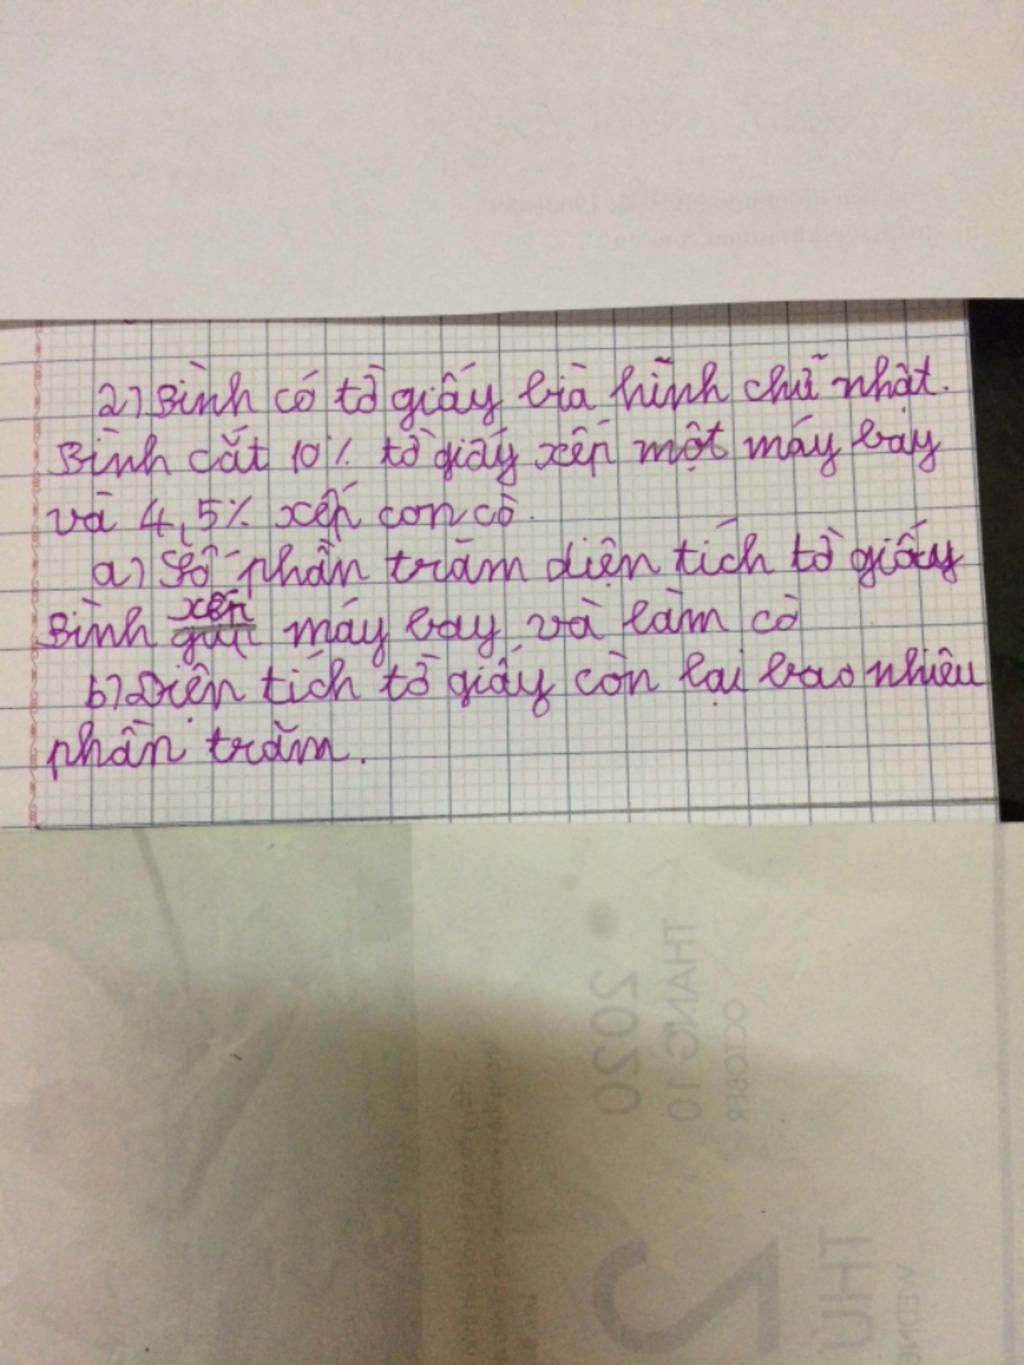 2) Bình có tờ giấy bìa hình chữ nhật.
Bình cắt 10% tờ giấy xếp một máy bay
và 4,5% xếp con cò.
a) Số phần trăm diện tích tờ giấy
Bình xếp máy bay và làm cò
b) Diện tích tờ giấy còn lại bao nhiêu
phần trăm.
OCTOBER
THANG 10
2020
THU
2